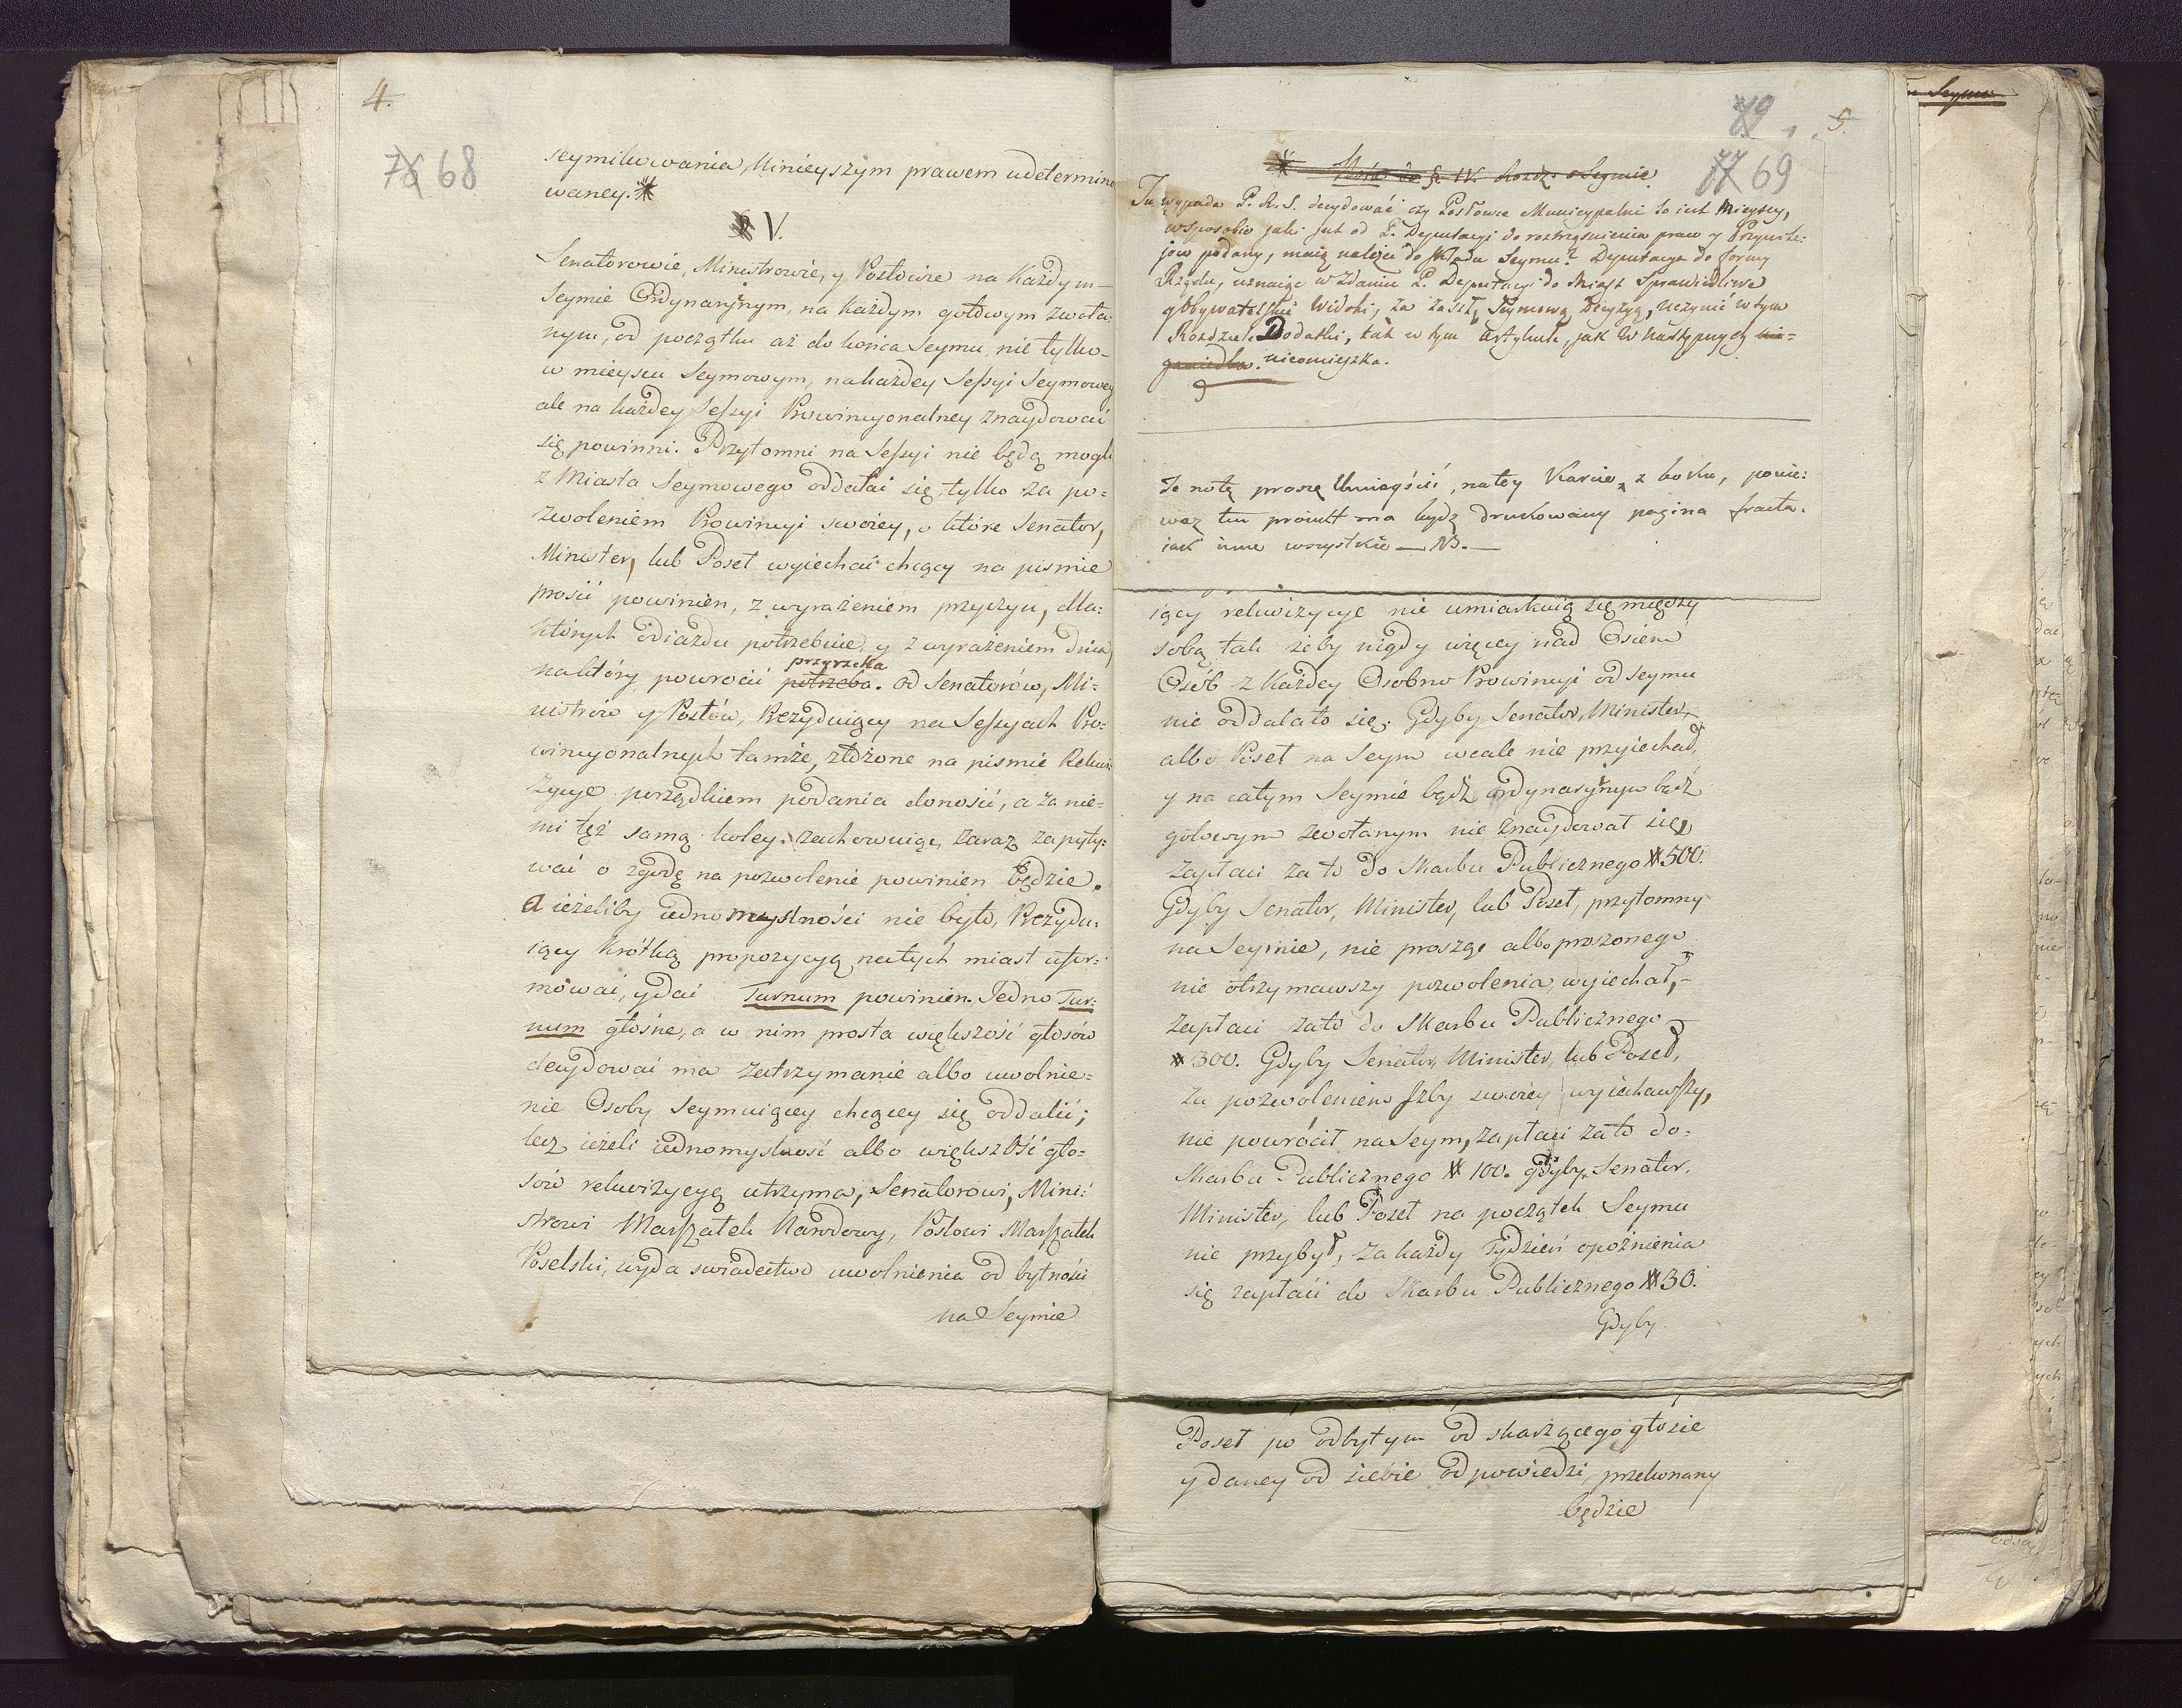 4.
76 68
seymikowania, Ninieyszym prawem udetermino
waney.*
§ V.
Senatorowie, Ministrowie, y Posłowie na Każdym
Seymie Ordynaryinym, na każdym gotowym zwoła:
nym, od początku aż do końca Seymu, nie tylko
w mieyscu Seymowym, na każdey Sessyi Seymowey
ale na każdey Sessyi Prowincyonalney znaydować
się powinni. Przytomni na Sessyi nie będą mogli
z Miasta Seymowego oddalać się, tylko za po=
zwoleniem Prowincyi swoiey, o które Senator,
Minister, lub Poseł wyiechać chcący na pismie
prosić powinien, z wyrażeniem przyczyn, dla:
których odiazdu potrzebuie, y z wyrażeniem dnia,
na który powrócić potrzeba. przyrzeka od Senatorów, Mi=
nistrów y Posłów, Rezyduiący na Sessyach Pro:
wincyonalnych tamże, złożone na pismie Rekwi:
zycye porządkiem podania donosić, a za nie=
mi też samą koley zachowuiąc, zaraz zapyty:
wać o zgodę na pozwolenie powinien będzie.
a ieżeliby iednomyslności nie było, Rezydu:
iący krótką propozycyą natych miast ufor:
mować, y dać Turnum powinien. Jedno Tur:
num głośne, a w nim prosta większość głosów
decydować ma zatrzymanie albo uwolnie=
nie Osoby Seymuiącey chcącey się oddalić;
lecz ieżeli iednomyslność albo większość gło=
sów rekwizycyą utrzyma, Senatorowi, Mini:
strowi Marszałek Narodowy, Posłowi Marszałek
Poselski, wyda swiadectwo uwolnienia od bytności
na Seymie
79 5.
77 69
* Nota do § IV. Rozdz: o Seymie
Tu wypada P. R. S. decydować czy Posłowie Municypalni to iest Mieyscy,
w sposobie jaki jest od P. Deputacyi do roztrząśnienia praw y Przywile:
jów podany, maią należeć do składu Seymu? Deputacya do formy
Rządu, uznaiąc w zdaniu P. Deputacyi do Miast Sprawiedliwe
y Obywatelskie Widoki, za zaszłą Seymową decyzyą, uczynić w tym
Rozdziale Dodatki, tak w tym Artykule, jak w następnych
nieomieszka.
Te notę proszę Umieścić, na tey Karcie, z boku, ponie:
waż ten proiekt ma bydź drukowany pagina fracta.
iak inne wszystkie — NB. —
iący rekwizycye nie umiarkuią się między
sobą tak żeby nigdy więcey nad Osiem
Osób z Każdey Osobno Prowincyi od Seymu
nie oddalało się. Gdyby Senator, Minister,
albo Poseł na Seym wcale nie przyiechał,
y na całym Seymie bądź ordynaryinym bądź
gotowym zwołanym nie znaydował się,
zapłaci za to do Skarbu Publicznego # 500.
Gdyby Senator, Minister, lub Poseł, przytomny
na Seymie, nie prosząc albo proszonego
nie otrzymawszy pozwolenia, wyiechał,
zapłaci za to do Skarbu Publicznego
# 300. Gdyby Senator, Minister, lub Poseł,
za pozwoleniem Izby swoiey wyiechawszy,
nie powrócił na Seym, zapłaci za to do=
Skarbu Publicznego # 100. gdyby Senator,
Minister, lub Poseł na początek Seymu
nie przybył, za każdy Tydzień opóźnienia
się zapłaci do Skarbu Publicznego # 30.
Gdyby
Poseł po odbytym od skarżącego głosie
y daney od siebie odpowiedzi, przekonany
będzie